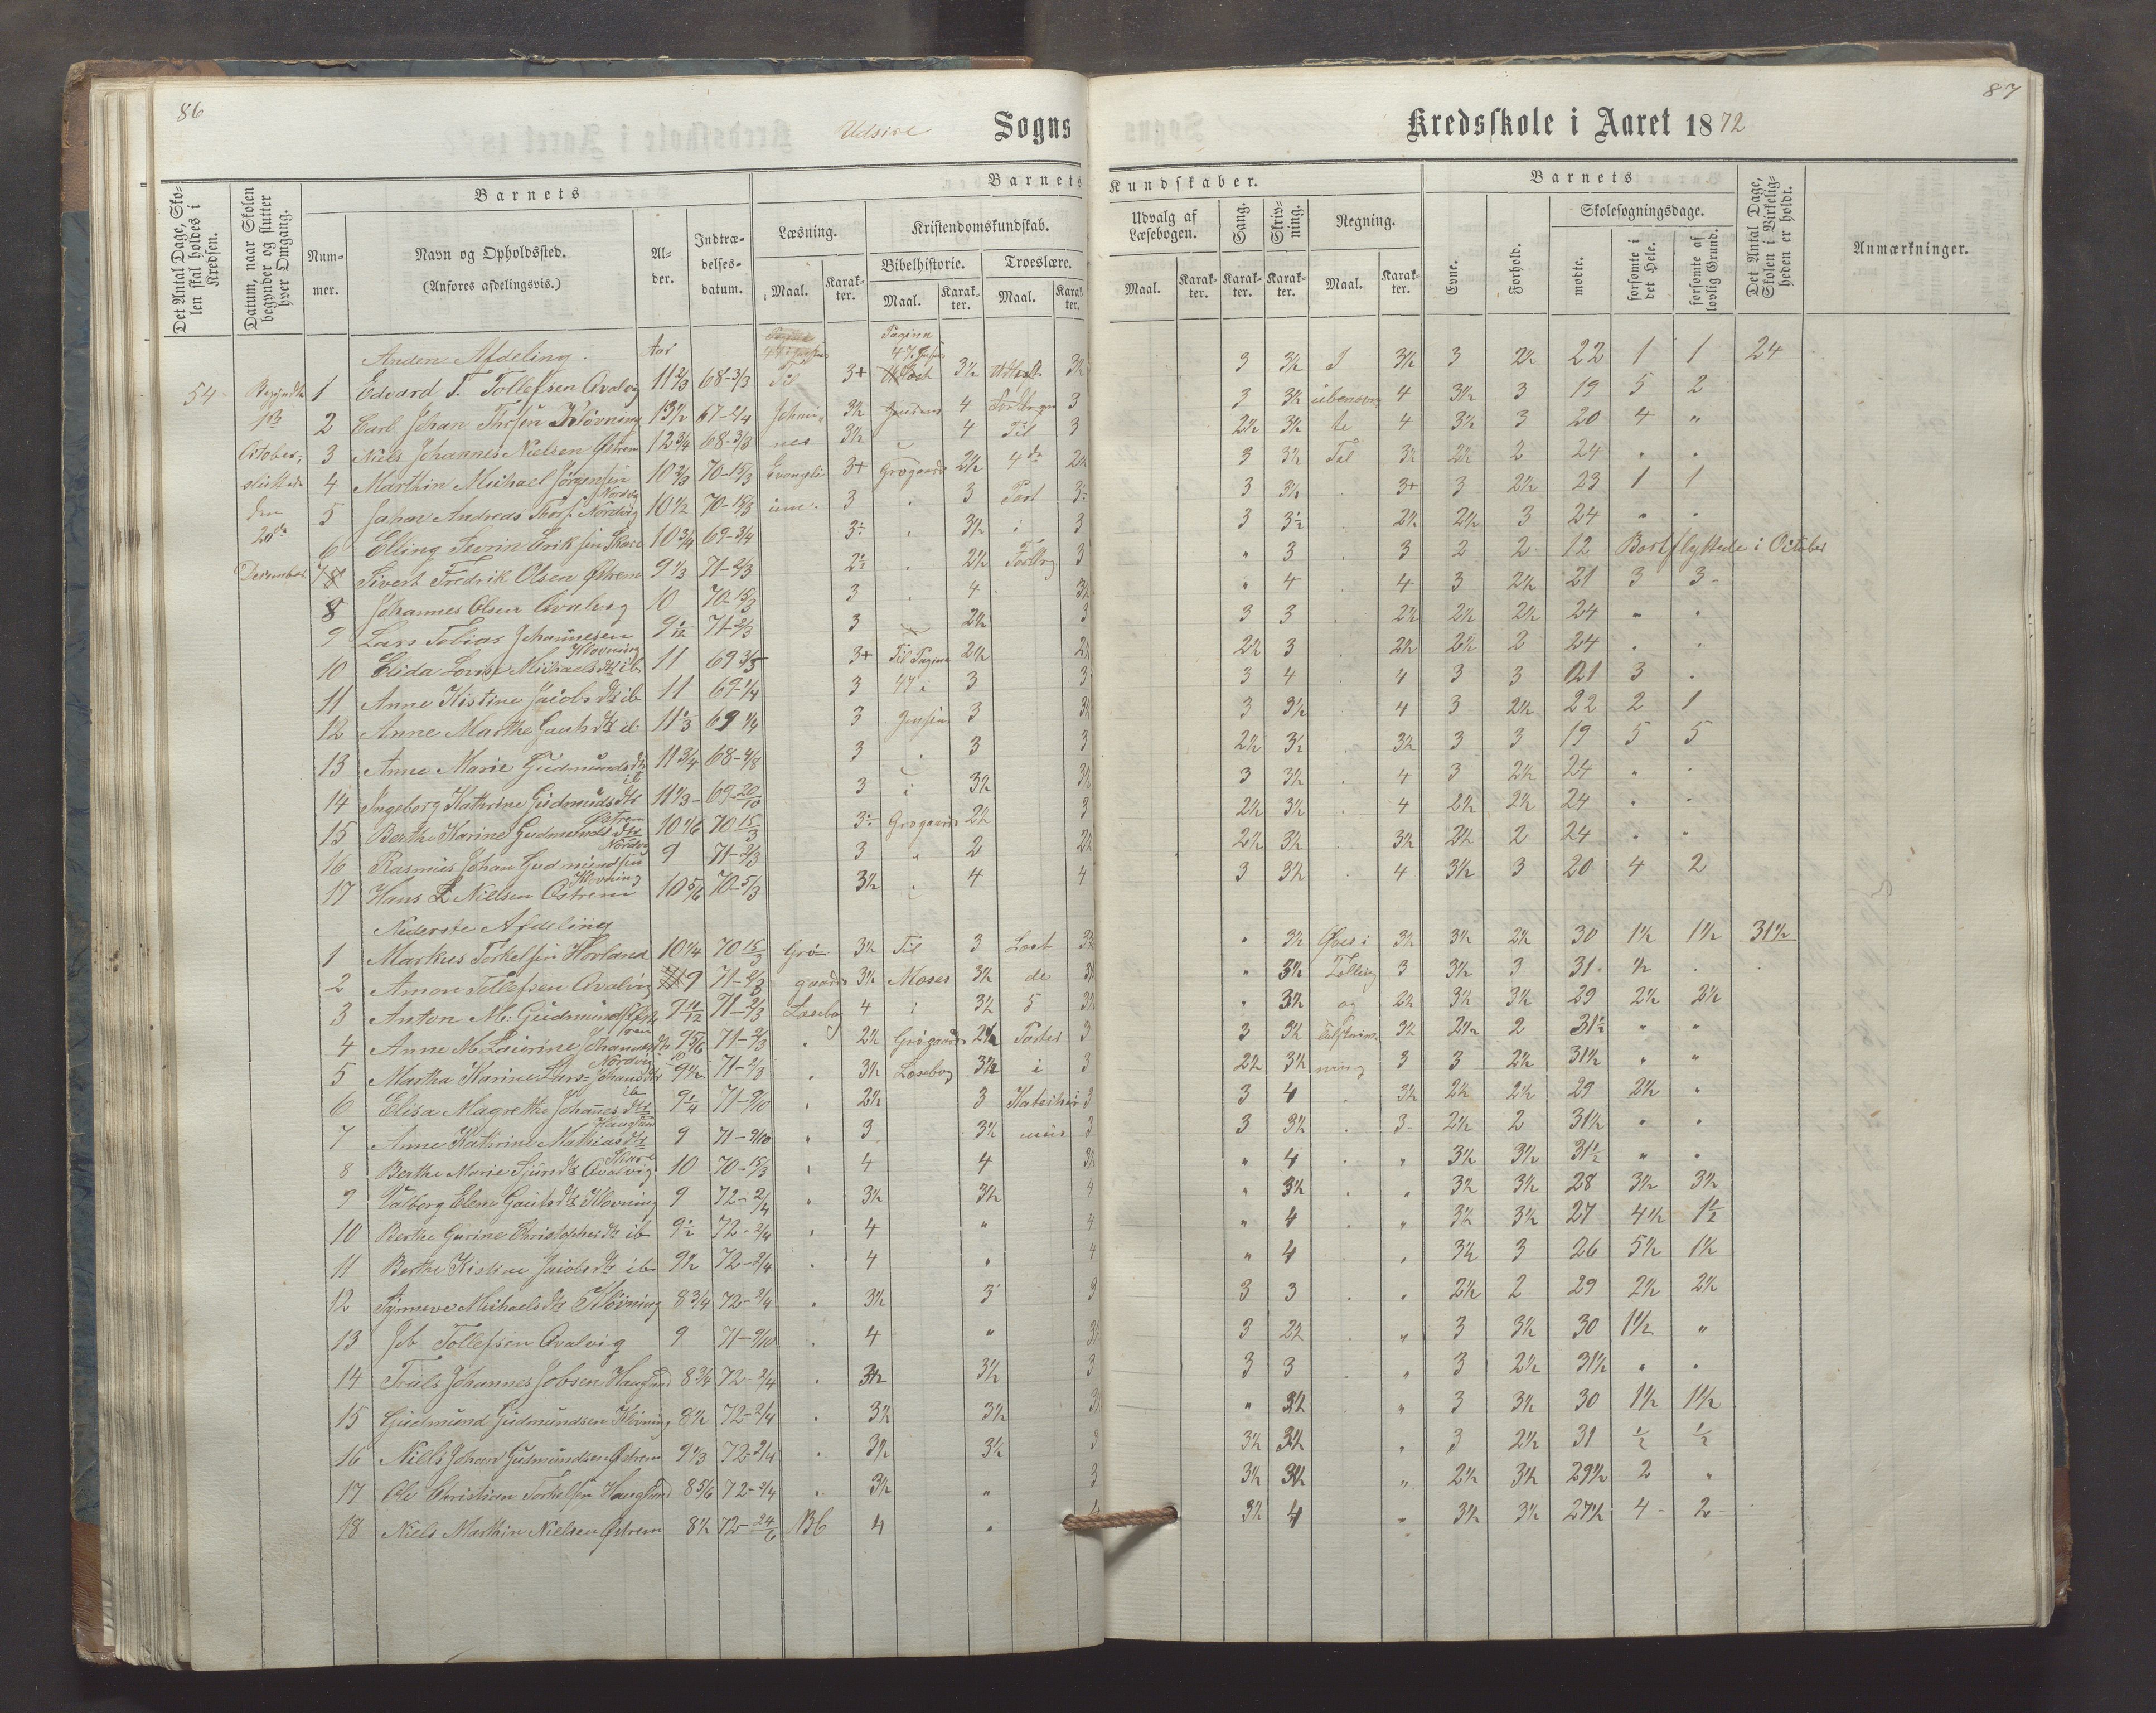 86
Udsire Sogns
Kredsskole i Aaret 1872
87
Det Antal Dage, Skolen skal holdes i Kredsen.
Datum, naar Skolen begynder og slutter hver Omgang.
Barnets
Nummer.
Navn og Opholdssted.
(Anføres afdelingsvis.)
Alder.
Indtrædelsesdatum.
Barnets
Læsning.
Maal.
Karakter.
Kristendomskundskab.
Bibelhistorie.
Maal.
Karakter.
Troeslære.
Maal.
Karakter.
Kundskaber.
Udvalg af Læsebogen.
Maal.
Karakter.
Sang.
Karakter.
Skrivning.
Karakter.
Regning.
Maal.
Karakter.
Barnets
Evne.
Forhold.
Skolesøgningsdage.
mødte.
forsømte i det Hele.
forsømte af lovlig Grund.
Det Antal Dage, Skolen i Virkeligheden er holdt.
Anmærkninger.
Anden Afdeling. Aar
54 Begyndte 1 Edvard T. Tollefsen Qvalvig 11 2/3 68-3/3 Til 3+ 3 1/2 3 3 1/2 3 1/2 3 2 1/2 22 1 1 24
2 Carl Johan Klovning 13 1/2 67-2/4 Johan- 3 1/2 4 3 3 3 1/2 ubenævn 4 3 1/2 3 19 5 2
October, 3 Niels Johannes Nielsen Østrem 12 3/4 68-3/3 nes 3 1/2 4 Til 3 2 1/2 3 1/2 te 4 3 1/2 3 20 4 "
sluttede 4 Marthin Michael Jørgensen Nordvig 10 2/3 70-15/3 Evangeli- 3+ Grøgaards 2 1/2 4de 2 1/2 3 3 1/2 Tal 3 1/2 2 1/2 2 24 " "
den 5 Johan Andreas Nordvig 10 1/2 70-15/3 um. 3 3 Part 3 3 3 1/2 3+ 3 2 1/2 23 1 1
20de 6 Elling Severin Eriksen Skare 10 3/4 69-3/4 3 3 1/2 i 3 3 3 1/2 2 1/2 2 1/2 3 24 " "
December 7 Sivert Fredrik Olsen Østrem 9 1/3 71-2/3 2 1/2 Forklrg 3 " 3 3 2 2 12 Bortflyttede i October
8 Johannes Olsen Qvalvig 10 70-15/3 3 4 3 1/2 " 4 4 3 2 1/2 21 3 3
9 Lars Tobias Johannesen Klovning 9 1/12 71-2/3 3 2 1/2 3 3 3 2 1/2 2 1/2 2 1/2 24 " "
10 Elida Lovise Michaelsdtr ib 11 69 3/5 3+ Til Pagina 2 1/2 2 1/2 3 2 1/2 2 1/2 2 24 " "
11 Anne Kistine Jacobsdtr ib 11 69-1/4 3 47 i 3 3 3 4 4 3 3 21 3 "
12 Anne Marthe Gautsdtr ib 11 1/3 69 1/4 3 3 3 1/2 3 3 1/2 4 3 2 1/2 22 2 1
13 Anne Marie Gudmundsdtr ib 11 3/4 68-4/8 3 3 3 2 1/2 3 1/2 3 1/2 3 3 19 5 5
14 Ingeborg Kathrine Gudmundsdtr Østrem 11 1/3 69-20/10 3 3 1/2 3 1/2 3 3 1/2 4 3 2 1/2 24 " "
15 Berthe Karine Gudmundsdtr Nordvig 10 1/6 70 15/3 3 Grøgaards 2 1/2 3 2 1/2 3 1/2 4 2 1/2 2 1/2 24 " "
16 Rasmus Johan Gudmundsen Klovning 9 71-2/3 3 " 2 2 1/2 2 1/2 3 1/2 3 1/2 2 1/2 2 24 " "
17 Hans Nielsen Østrem 10 5/6 70-5/3 3 1/2 4 4 3 3 1/2 4 3 1/2 3 20 4 2
Nederste Afdeling
1 Markus Torkelsen Hovland 10 1/4 70 15/3 Grø- 3 1/2 Til 3 Lært 3 1/2 " 3 1/2 Øves i 3 1/2 3 1/2 2 1/2 30 1 1/2 1 1/2 31 1/2
2 Amon Tollefsen Qvalvig 9 71-2/3 gaards 3 1/2 Moses 3 1/2 de 3 1/2 " 3 1/2 Telling 3 3 1/2 3 31 1/2 "
3 Anton M. Gudmundsen Østrem 9 11/12 71-2/3 Læsebog 4 i 3 1/2 5 3 1/2 " 3 1/2 og 2 1/2 3 1/2 3 1/2 29 2 1/2 2 1/2
4 Anne M. Laurine Johannesdtr Nordvig 9 5/6 71-2/3 " 2 1/2 Grøgaards 2 1/2 Parter 3 3 3 1/2 3 1/2 2 1/2 2 31 1/2 " "
5 Martha Karine Johansdtr ib 9 1/2 71-2/3 " 3 1/2 Læsebog 3 1/2 i 3 2 1/2 3 1/2 ning 3 3 2 1/2 31 1/2 " "
6 Elisa Magrethe Johannesdtr Haugland 9 1/4 71-9/10 " 2 1/2 3 Katechis- 3 3 4 3 1/2 2 1/2 2 1/2 29 2 1/2 "
7 Anne Kathrine Mathiasdtr Skare 9 71-9/10 " 3 3 1/2 mus 3 3 3 1/2 3 2 1/2 2 31 1/2 " "
8 Berthe Marie Sjursdtr Qvalvig 10 70-15/3 " 4 4 3 1/2 " 4 " 3 1/2 3 1/2 31 1/2 " "
9 Valborg Elene Gautsdtr Klovning 9 72-2/4 " 3 1/2 3 1/2 4 " 3 1/2 " 3 1/2 3 1/2 28 3 1/2 3 1/2
10 Berthe Gurine Christophersdtr ib 9 1/2 72-2/4 " 4 " 4 " 4 " 3 1/2 3 1/2 27 4 1/2 1 1/2
11 Berthe Kistine Jacobsdtr ib 9 1/2 72-2/4 " 4 " 4 " 4 " 3 1/2 3 26 5 1/2 1 1/2
12 Synneve Michaelsdtr Klovning 8 3/4 72-2/4 " 3 1/2 3 3 3 3 " 2 1/2 2 29 2 1/2 2 1/2
13 Job Tollefsen Qvalvig 9 71-9/10 " 4 " 3 1/2 3 2 1/2 " 3 3 1/2 30 1 1/2 "
14 Truls Johannes Jobsen Haugland 8 3/4 72-2/4 " 3 1/2 3 1/2 3 3 3 " 3 2 1/2 31 1/2 " "
15 Gudmund Gudmundsen Klovning 8 1/2 72-2/4 " 3 1/2 3 1/2 3 1/2 " 3 1/2 " 3 3 1/2 30 1 1/2 1 1/2
16 Niels Johan Gudmundsen Østrem 9 1/3 72-2/4 " 3 1/2 3 1/2 3 3 1/2 3 1/2 " 3 2 1/2 31 1/2 1/2
17 Ole Christian Torkelsen Haugland 8 5/6 72-2/4 " 3 1/2 " 3 3 1/2 3 1/2 " 2 1/2 3 1/2 29 1/2 2 "
18 Niels Marthin Nielsen Østrem 8 1/2 72-24/6 4 " 4 3 1/2 4 " 3 1/2 3 1/2 27 1/2 4 2